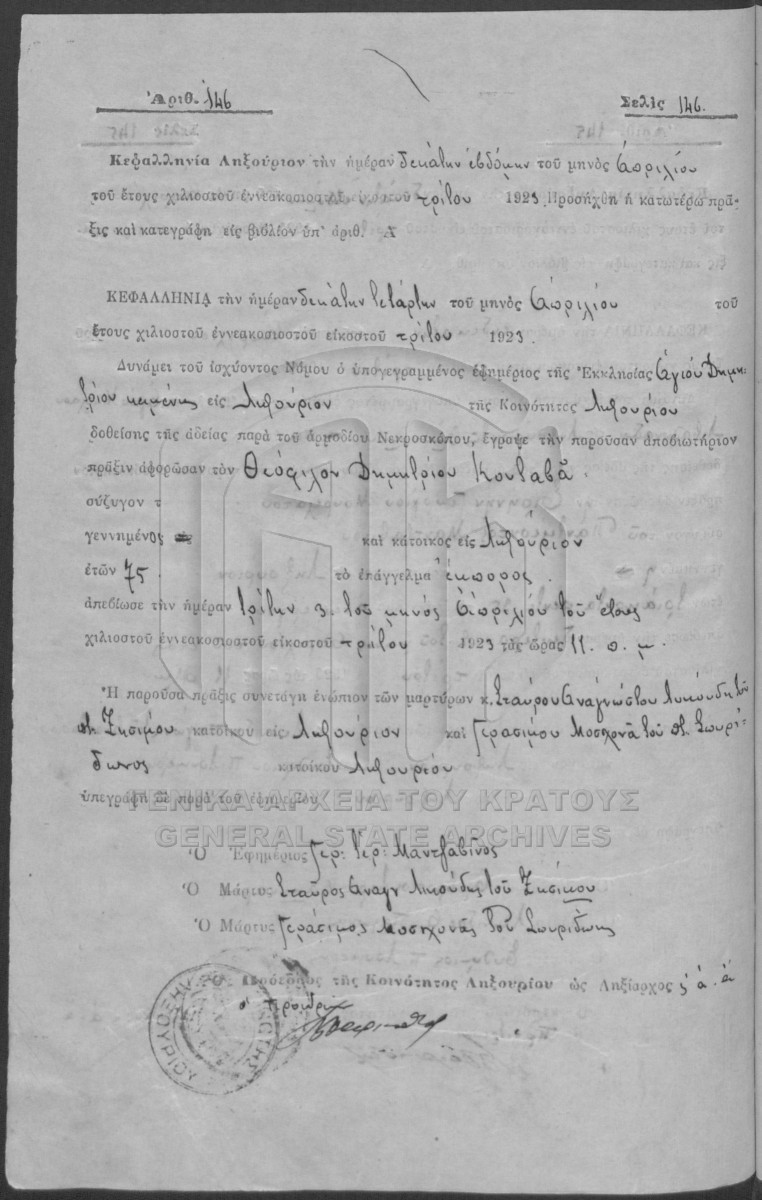 Ἀριθ. 146
Σελὶς 146.
Κεφαλληνία Ληξούριον τὴν ἡμέραν δεκάτην ἑβδόμην τοῦ μηνὸς Ἀπριλίου
τοῦ ἔτους χιλιοστοῦ ἐννεακοσιοστοῦ εἰκοστοῦ τρίτου 1923 Προσήχθη ἡ κατωτέρω πρᾶ-
ξις καὶ κατεγράφη εἰς βιβλίον ὑπ' ἀριθ. Α
ΚΕΦΑΛΛΗΝΙΑ τὴν ἡμέραν δεκάτην τετάρτην τοῦ μηνὸς Ἀπριλίου τοῦ
ἔτους χιλιοστοῦ ἐννεακοσιοστοῦ εἰκοστοῦ τρίτου 1923.
Δυνάμει τοῦ ἰσχύοντος Νόμου ὁ ὑπογεγραμμένος ἐφημέριος τῆς Ἐκκλησίας Ἁγίου Δημη-
τρίου εἰς Ληξούριον τῆς Κοινότητος Ληξουρίου
δοθείσης τῆς ἀδείας παρὰ τοῦ ἁρμοδίου Νεκροσκόπου, ἔγραψε τὴν παροῦσαν ἀποβιωτήριον
πρᾶξιν ἀφορῶσαν τὸν Θεόφιλον Δημητρίου Κουταβᾶ.
σύζυγον τ
γεννημένος καὶ κάτοικος εἰς Ληξούριον
ἐτῶν 75. τὸ ἐπάγγελμα ἔμπορος.
ἀπεβίωσε τὴν ἡμέραν τρίτην 3. τοῦ μηνὸς Ἀπριλίου τοῦ ἔτους
χιλιοστοῦ ἐννεακοσιοστοῦ εἰκοστοῦ τρίτου 1923 τὰς ὥρας 11. π. μ.
Ἡ παροῦσα πρᾶξις συνετάγη ἐνώπιον τῶν μαρτύρων κ. Σταύρου Ἀναγνώστου Λυκούδη τοῦ
π. Ζησίμου κατοίκου εἰς Ληξούριον καὶ Γερασίμου Μοσχονᾶ τοῦ π. Σπυρί-
δωνος κατοίκου Ληξουρίου
ὑπεγράφη δὲ παρὰ τοῦ ἐφημερίου
ΓΕΝΙΚΑ ΑΡΧΕΙΑ ΤΟΥ ΚΡΑΤΟΥΣ
GENERAL STATE ARCHIVES
Ὁ Ἐφημέριος Γερ: Ἱερ: Μαντζαβῖνος
Ὁ Μάρτυς Σταῦρος Αναγν Λυκούδης τοῦ Ζησίμου
Ὁ Μάρτυς Γεράσιμος Μοσχονᾶς τοῦ Σπυρίδωνος
Ὁ Πρόεδρος τῆς Κοινότητος Ληξουρίου ὡς Ληξίαρχος